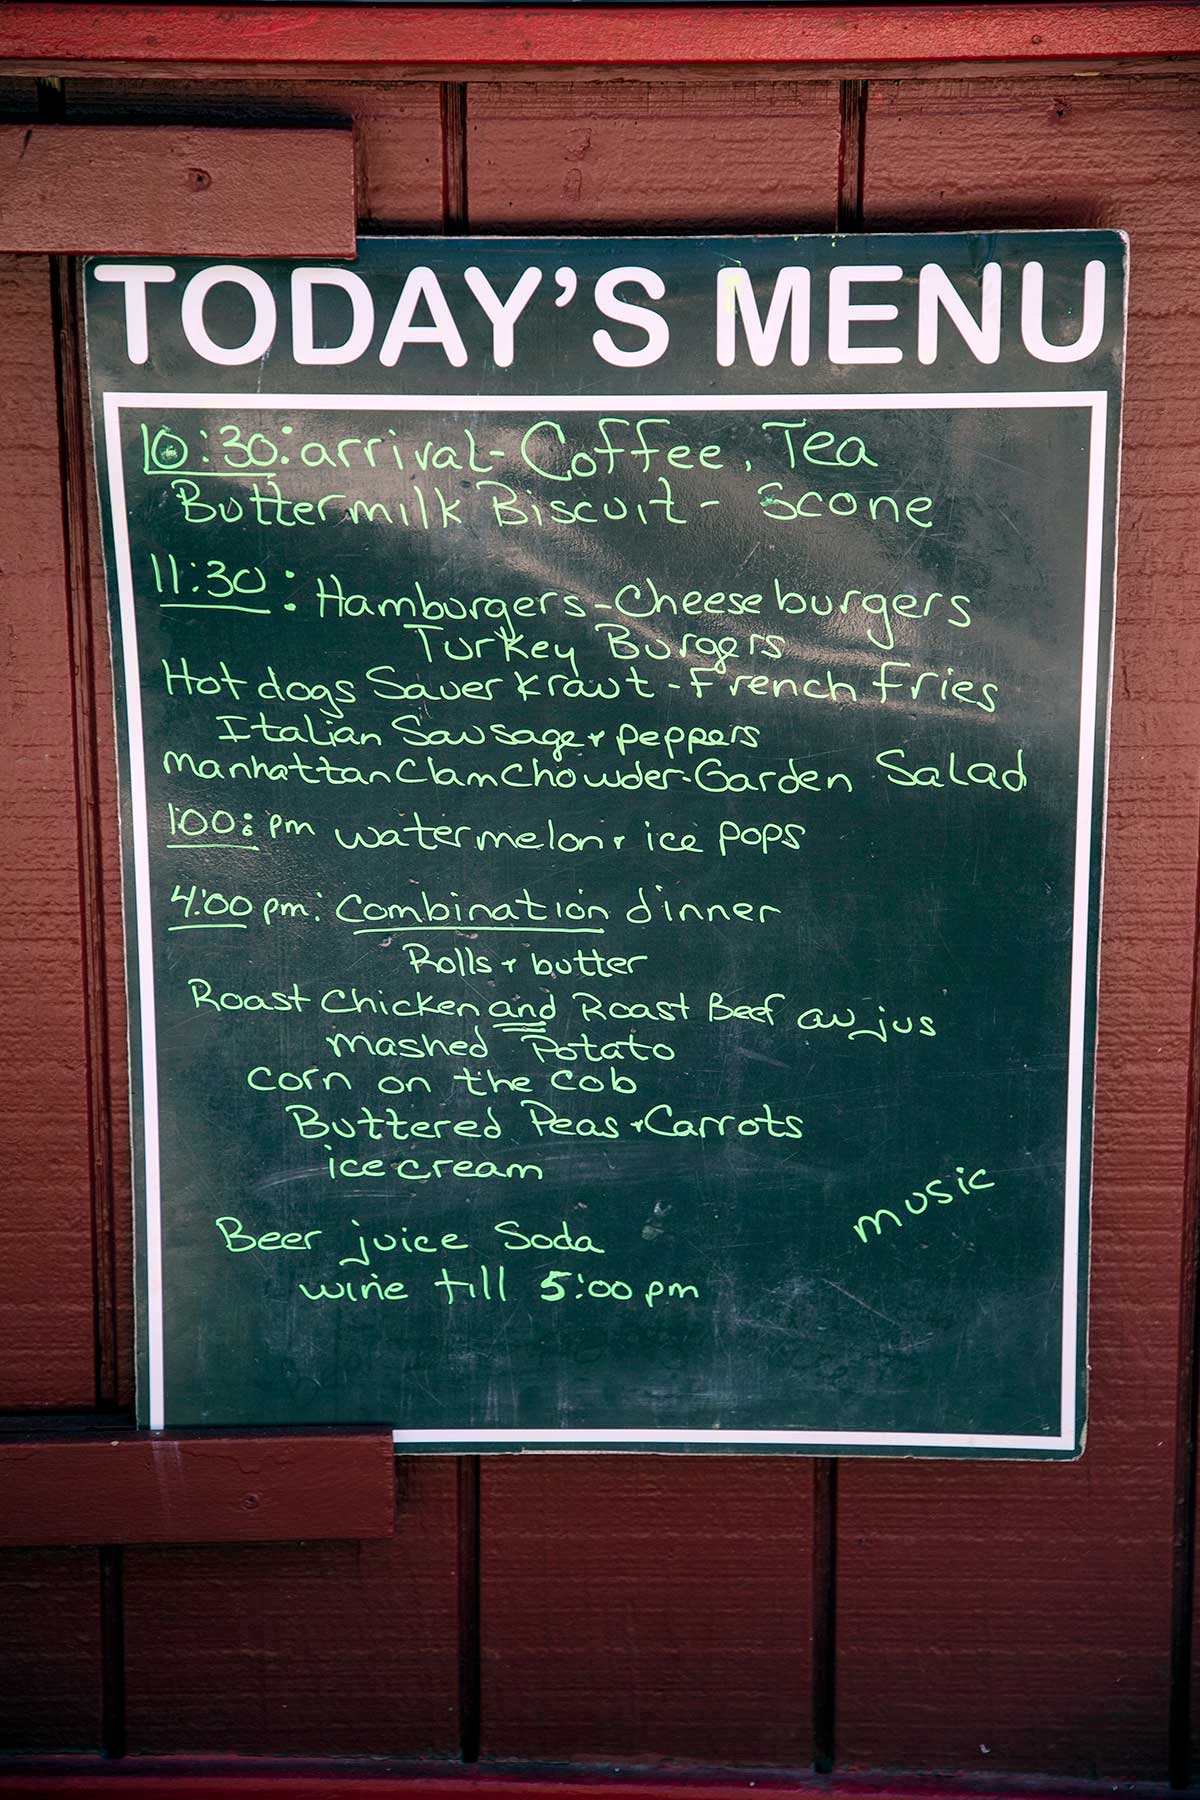 TODAY'S MENU
10:30: arrival - Coffee, Tea
Buttermilk Biscuit - Scone
11:30: Hamburgers - Cheeseburgers
Turkey Burgers
Hot dogs Sauerkraut - French fries
Italian Sausage + peppers
Manhattan Clam Chowder - Garden Salad
1:00: pm watermelon + ice pops
4:00 pm: Combination dinner
Rolls + butter
Roast Chicken and Roast Beef au jus
mashed Potato
corn on the cob
Buttered Peas + Carrots
ice cream
music
Beer juice Soda
wine till 5:00 pm